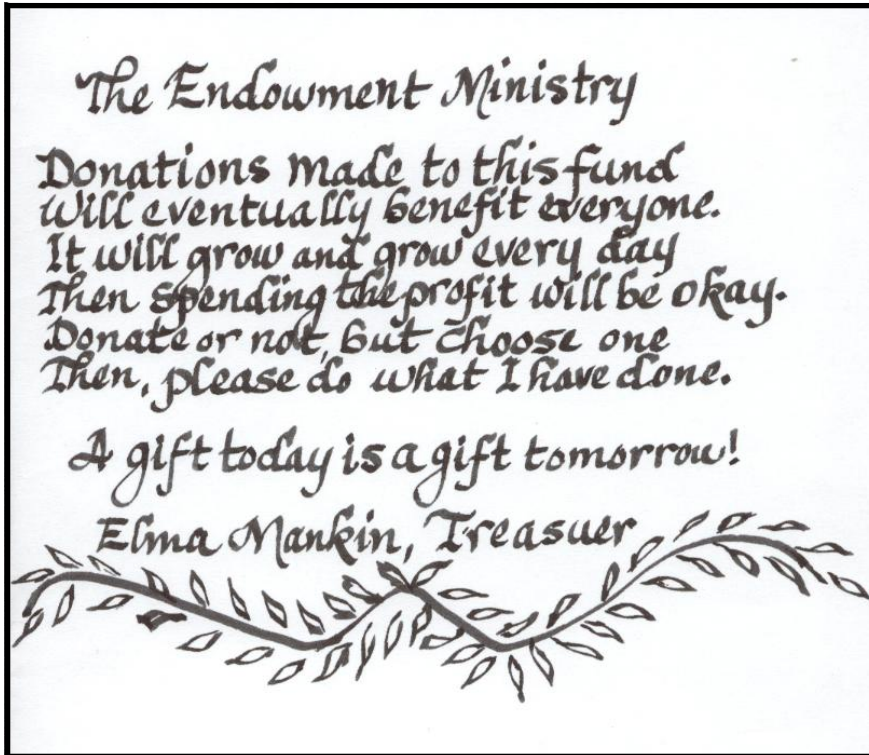 The Endowment Ministry
Donations made to this fund
Will eventually benefit everyone.
It will grow and grow every day
Then spending the profit will be okay.
Donate or not, but choose one
Then, please do what I have done.
A gift today is a gift tomorrow!
Elma Mankin, Treasuer